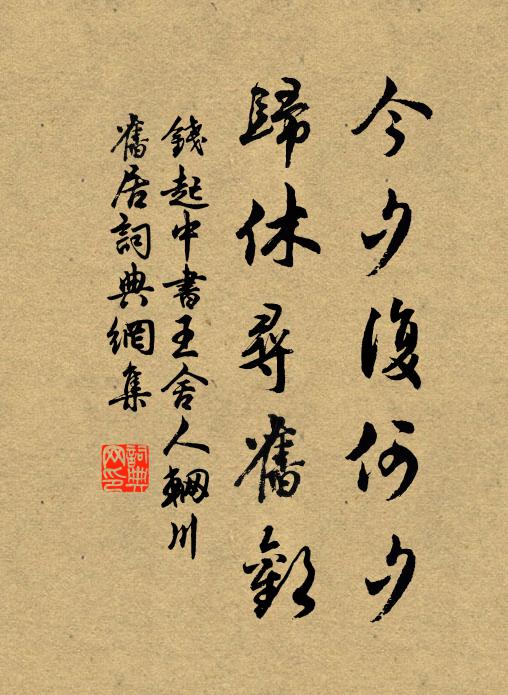 今夕復何夕
歸休尋舊歡
錢起中書王舍人輞川
舊居詞典網集
詞典
网印